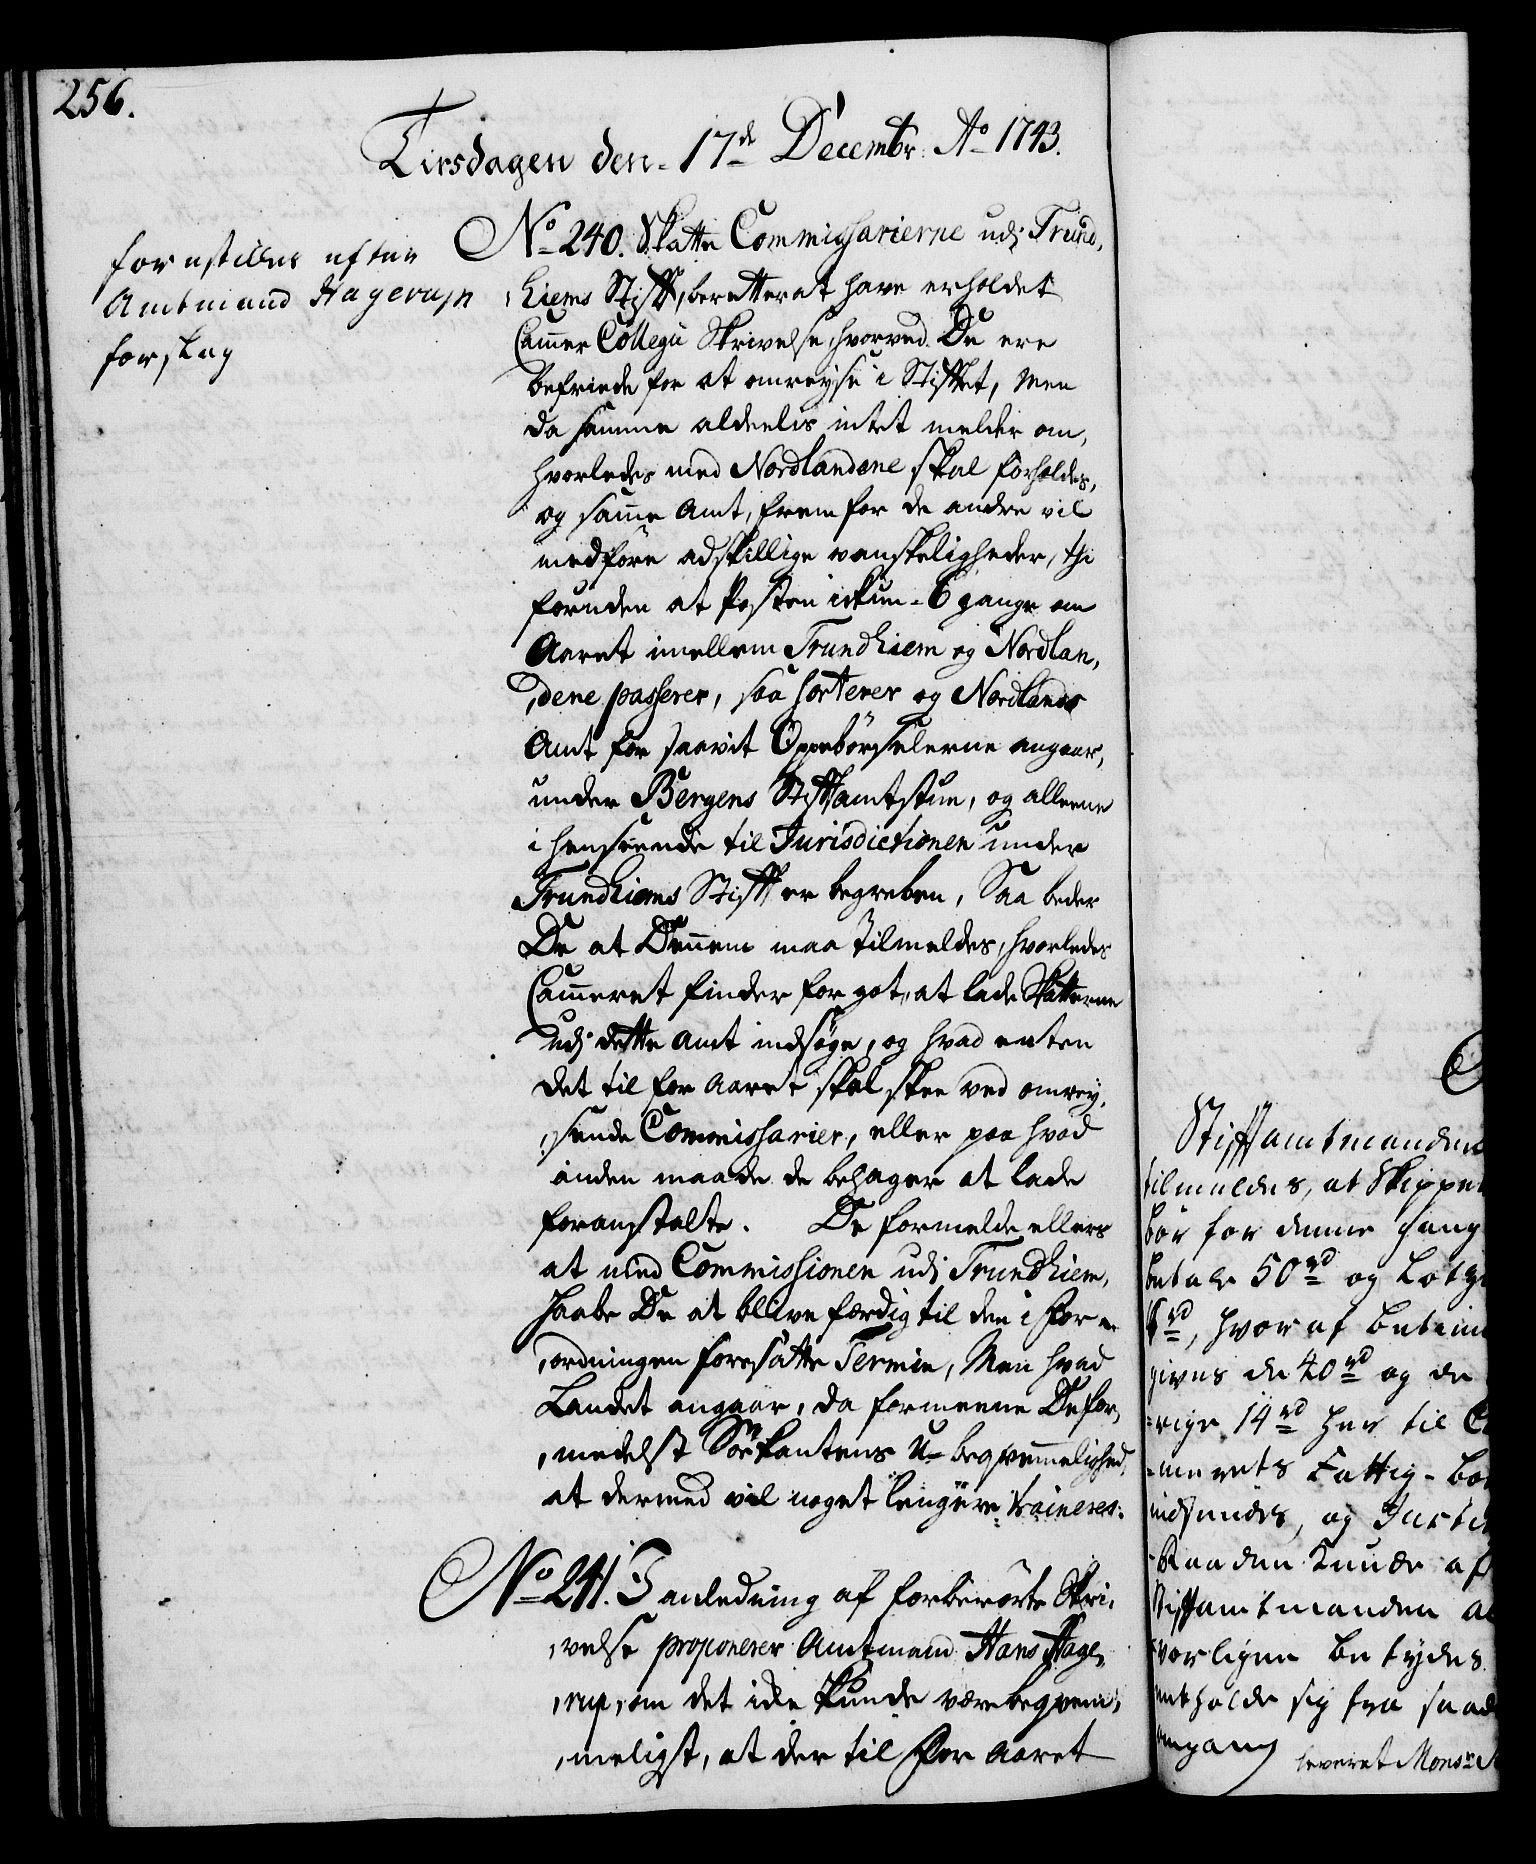 256.
Tirsdagen den 17de Decembr. Ao 1743.
forestilles efter
Amtmand Hagerups
forslag
No 240. Skatte Commissarierne udi Trund,
,hiems Stift, beretter at have erholdet
Cammer Collegii Skrivelse, hvorved De ere
befriede for at omreyse i Stiftet, Men
da samme aldeelis intet melder om,
hvorledes med Nordlandene skal forholdes,
og samme Amt, frem for de andre vil
medføre adskillige vanskeligheder, thi
foruden at Posten ickun 6 gange om
Aaret imellem Trundhiem og Nordlan,
,dene passerer, saa sorterer og Nordlands
Amt for saavit Oppebørselerne angaar,
under Bergens Stiftamtstue, og alleene
i henseende til Jurisdictionen under
Trundhiems Stift er begreben, Saa beder
De at Dennem maa tilmeldes, hvorledes
Cammeret finder for got, at lade Skatterne
udi dette Amt indsøge, og hvad enten
det til for Aaret skal skee ved omrey,
,sende Commissarier, eller paa hvad
anden maade de behager at lade
foranstalte. De formelde ellers
at med Commissionen udi Trundhiem,
haabe De at blive færdig til den i For
,ordningen foresatte Termin, Men hvad
Landet angaar, da formeene De for,
,medelst Søe Kantens U-beqvemmelighed,
at dermed vil noget lengere traineres.
No 241. I anledning af forberørte Skri,
,velse proponerer Amtmand Hans Hage,
,rup, om det icke kunde være beqvem,
,meligst, at der til For Aaret
Stiftamtmanden
tilmeldes, at Skipper
bør for denne gang
betale 50 rd og
rd, hvoraf
gives de 40 rd og de
-rige 14 rd her til
-merets Fattig-
indsendes, og
-Raaden
Stiftamtmanden
-vorligen betydes
entholde sig fra saad
omgang
leveret Monsr